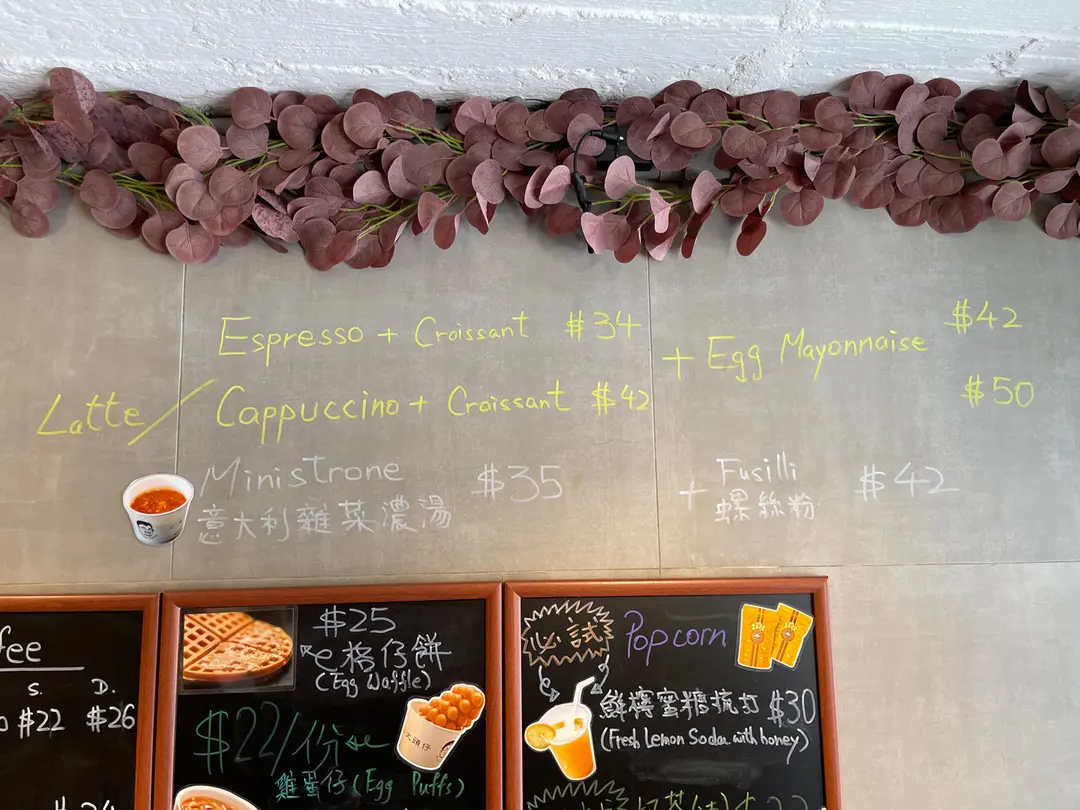 Espresso + Croissant $34
+ Egg Mayonnaise $42
Latte/ Cappuccino + Croissant $42
$50
Ministrone $35
意大利雜菜濃湯
+ Fusilli $42
螺絲粉
fee
S. D.
$22 $26
$25
格仔餅
(Egg Waffle)
$22/份
大頭仔
雞蛋仔(Egg Puffs)
必試
Popcorn
鮮檸蜜糖梳打 $30
(Fresh Lemon Soda with honey)